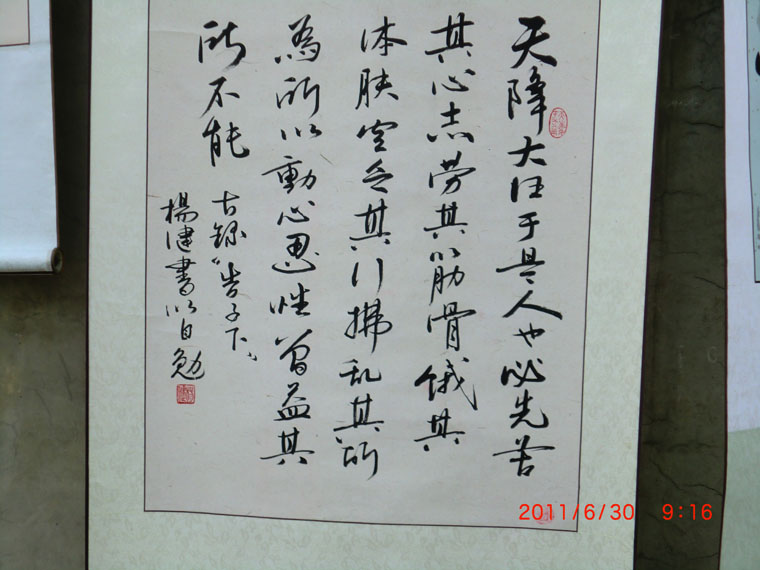 天降大任于是人也必先苦
其心志劳其筋骨饿其
体肤空乏其行拂乱其所
為所以動心忍性曾益其
所不能
右録“告子下”
楊健書以自勉
2011/6/30 9:16